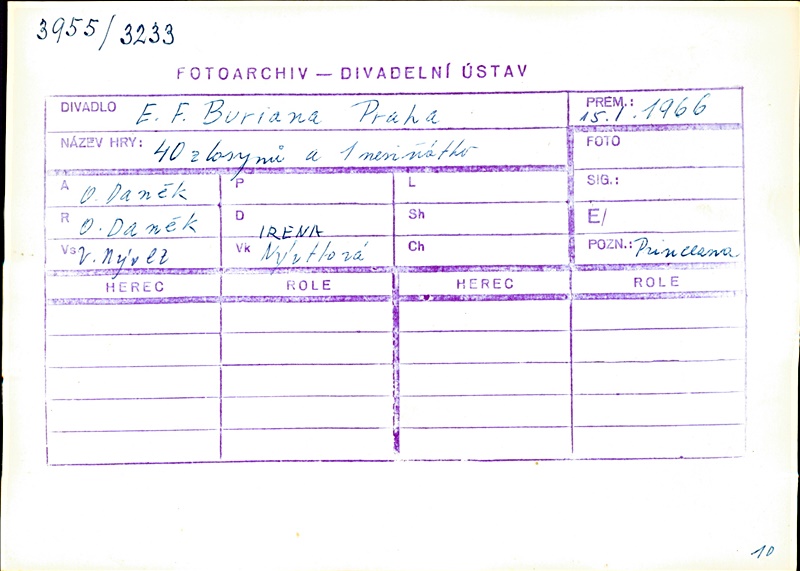 3955/3233
FOTOARCHIV — DIVADELNÍ ÚSTAV
DIVADLO E. F. Buriana Praha
PREM.: 15.1.1966
NÁZEV HRY: 40 zlosynů a 1 neviňátko
FOTO
A O. Daněk
P
L
SIG.:
R O. Daněk
D
Sh
É/
Vs V. Nývlt
Vk IRENA Nývltová
Ch
POZN.: Princezna
HEREC ROLE HEREC ROLE
10